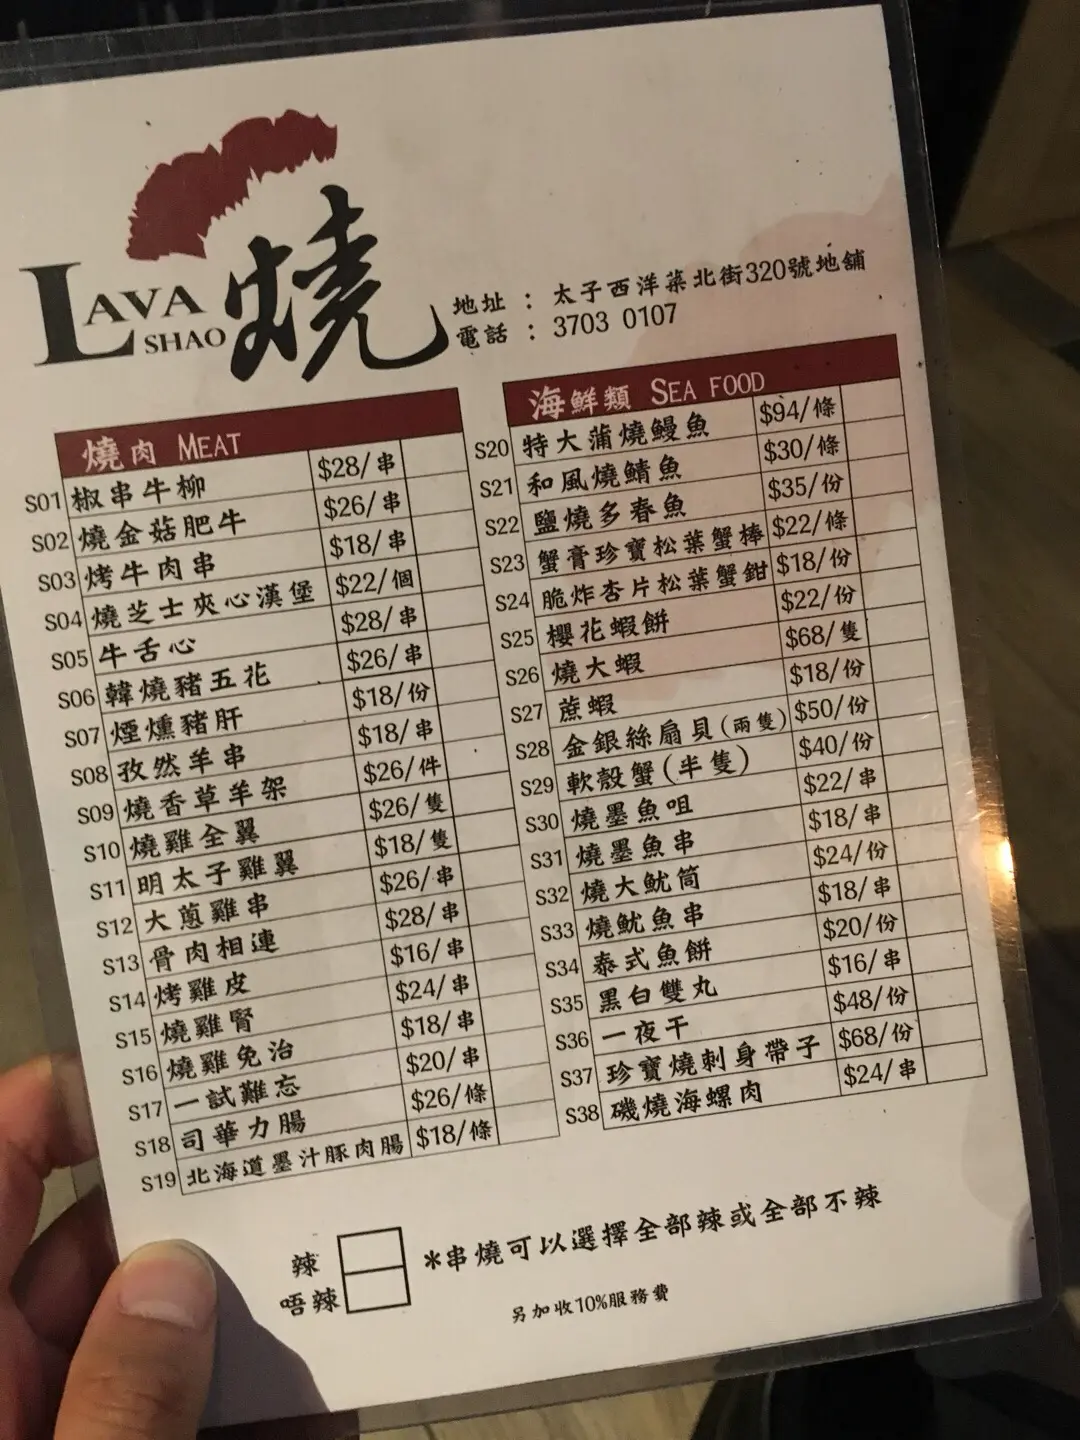 LAVA
SHAO
燒
地址 : 太子西洋菜北街320號地舖
電話 : 3703 0107
燒肉 MEAT
S01 椒串牛柳 $28/串
S02 燒金菇肥牛 $26/串
S03 烤牛肉串 $18/串
S04 燒芝士夾心漢堡 $22/個
S05 牛舌心 $28/串
S06 韓燒豬五花 $26/串
S07 煙燻豬肝 $18/份
S08 孜然羊串 $18/串
S09 燒香草羊架 $26/件
S10 燒雞全翼 $26/隻
S11 明太子雞翼 $18/隻
S12 大蔥雞串 $26/串
S13 骨肉相連 $28/串
S14 烤雞皮 $16/串
S15 燒雞腎 $24/串
S16 燒雞免治 $18/串
S17 一試難忘 $20/串
S18 司華力腸 $26/條
S19 北海道墨汁豚肉腸 $18/條
海鮮類 SEA FOOD
S20 特大蒲燒鰻魚 $94/條
S21 和風燒鯖魚 $30/條
S22 鹽燒多春魚 $35/份
S23 蟹膏珍寶松葉蟹棒 $22/條
S24 脆炸杏片松葉蟹鉗 $18/份
S25 櫻花蝦餅 $22/份
S26 燒大蝦 $68/隻
S27 蔗蝦 $18/份
S28 金銀絲扇貝(兩隻) $50/份
S29 軟殼蟹(半隻) $40/份
S30 燒墨魚咀 $22/串
S31 燒墨魚串 $18/串
S32 燒大魷筒 $24/份
S33 燒魷魚串 $18/串
S34 泰式魚餅 $20/份
S35 黑白雙丸 $16/串
S36 一夜干 $48/份
S37 珍寶燒刺身帶子 $68/份
S38 磯燒海螺肉 $24/串
辣
唔辣
*串燒可以選擇全部辣或全部不辣
另加收10%服務費